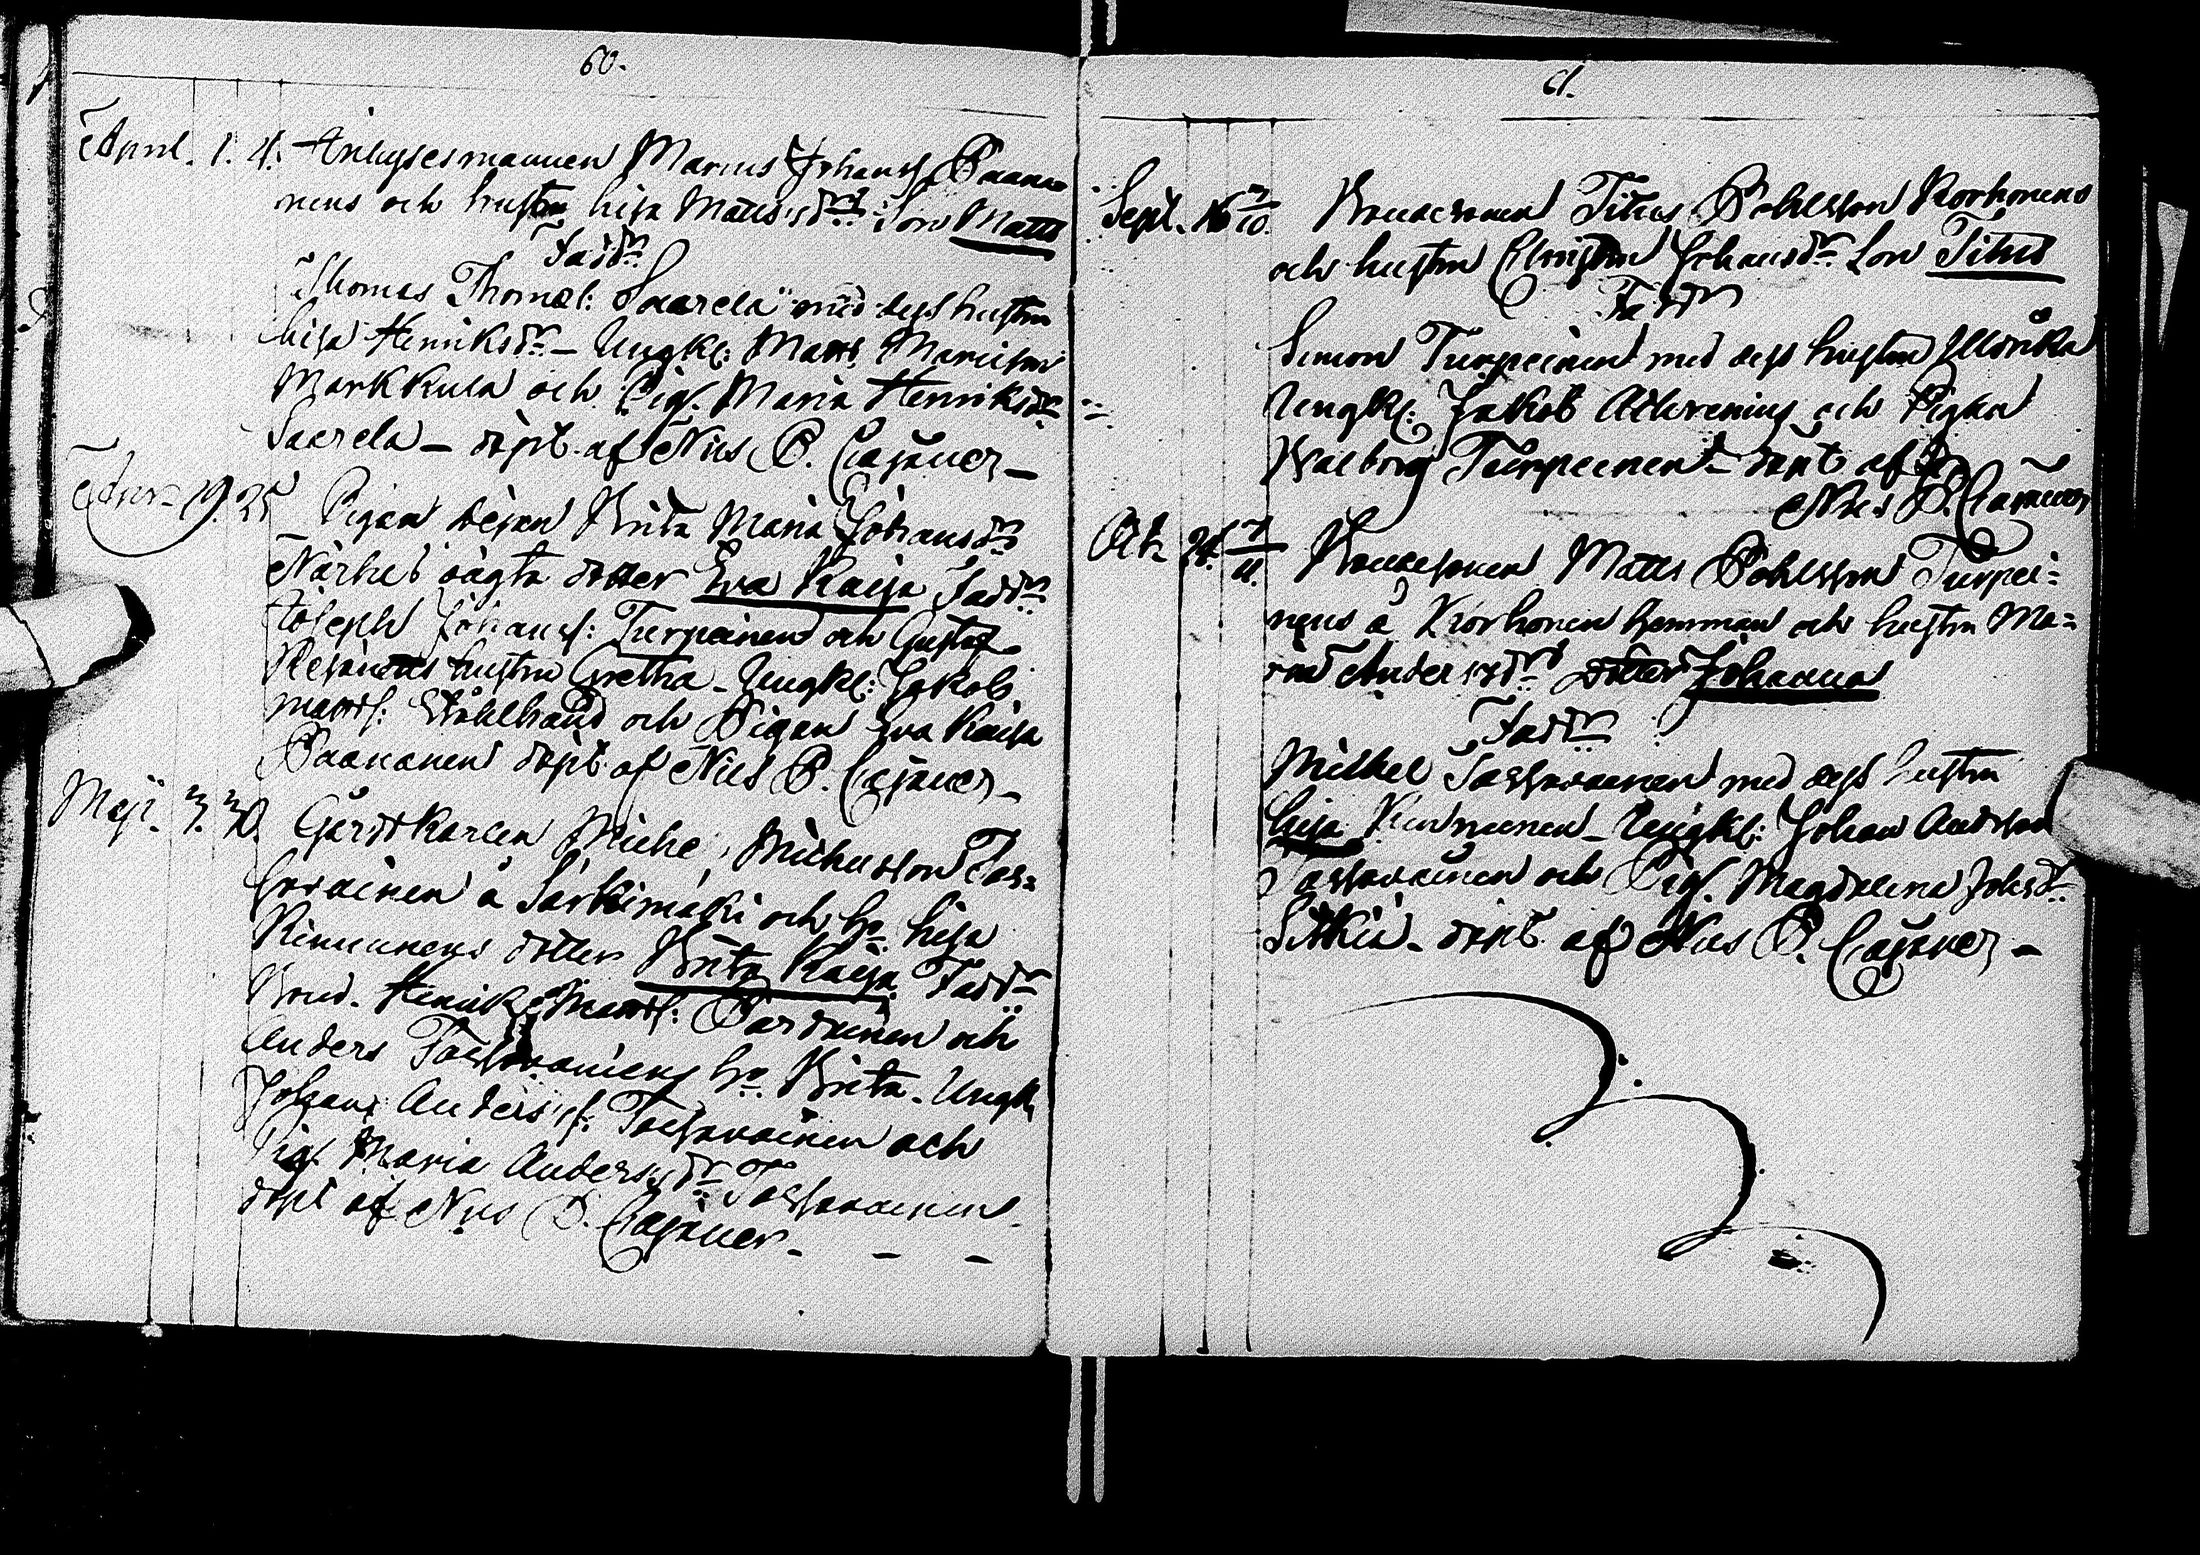 60.
April. 1. 4. Inhysesmannen Marcus Johansß. Paana
nens och hustru Lisa Matts dr: Son Matts
Faddr
Thomas Thomæs: Saarela med dess hustru
Lisa Henriksdr – Ungkl: Matts Marcusson
Markkula och Pig. Maria Henriksdr
Saarela – döpt af Nils P. Cajaner –
19. 25 Pigan Brita Maria Johansdr
oägta dotter Eva Kaisa Faddr
Joseph Johanss: Turpeinen och Gustaf
hustru Gretha – Ungkl: Jakob
Mattss: Stählbrand och Pigan Eva Kaisa
Paananen döpt af Nils P. Cajaner –
Maji. 3. 30. Gårdtkarlen Michel Michelsson Tos=
savainen å Särkimäki och ho. Lisa
Kinnunens dotter Brita Kaisa Faddr
Bond. Henrik Mattss: Pardainen och
Anders Tossavainens ho. Brita – Ungk.
Johan Anderss: Tossavainen och
Pig. Maria Andersdr Tossavainen
döpt af Nils P. Cajaner –
61.
Sept. 16 2/10. Bondesonen Titus Pohlsson Korhonens
och hustru Christin Johansdr Son Titus
Faddr
Simon Turpeinen med dess hustru Ulrika
Ungkl: Jakob och Pigan
Walborg Turpeinen – döpt af
Nils P. Cajaner
Oct. 24. 7/11. Bondesonen Matts Pohlsson Turpei=
nens å Korhonen hemman och hustru Ma=
ria Andersdr dotter Johanna
Faddr
Mickel Tossavainen med dess hustru
Lisa Kinnunen – Ungkl: Johan Andersson
Tossavainen och Pig. Magdalena Johsdr
döpt af Nils P. Cajaner –